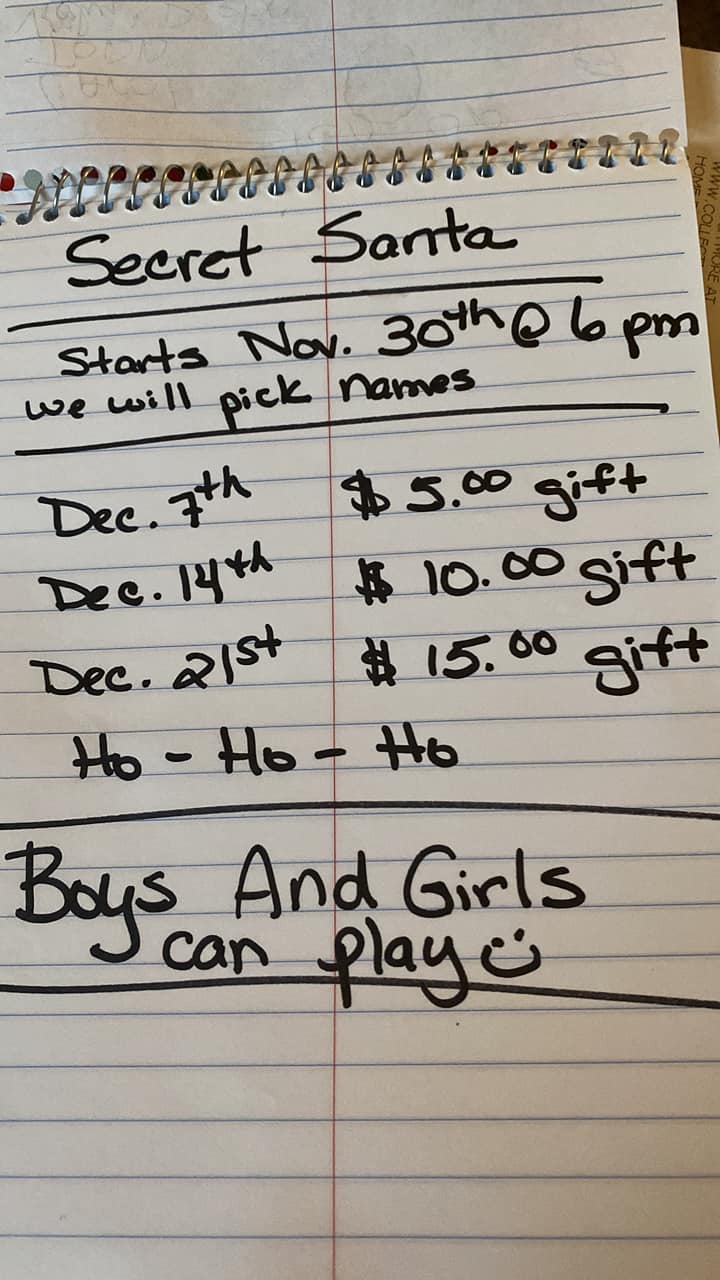 Secret Santa
Starts Nov. 30th @ 6 pm
we will pick names
Dec. 7th $ 5.00 gift
Dec. 14th $ 10.00 gift
Dec. 21st $ 15.00 gift
Ho - Ho - Ho
Boys And Girls
can play